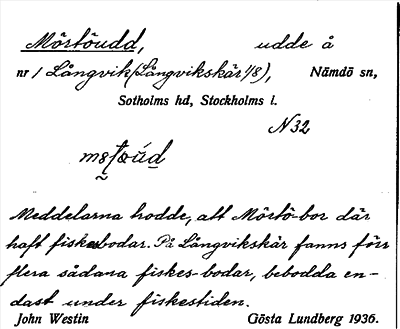 Mörtöudd, udde å
nr 1 Långvik (Långvikskär 1/8), Nämdö sn,
Sotholms hd, Stockholms l.
N 32
Meddelarna trodde, att Mörtö-bor där
haft fiskebodar. På Långvikskär fanns förr
flera sådana fiskes-bodar, bebodda en-
dast under fiskestiden.
John Westin Gösta Lundberg 1936.